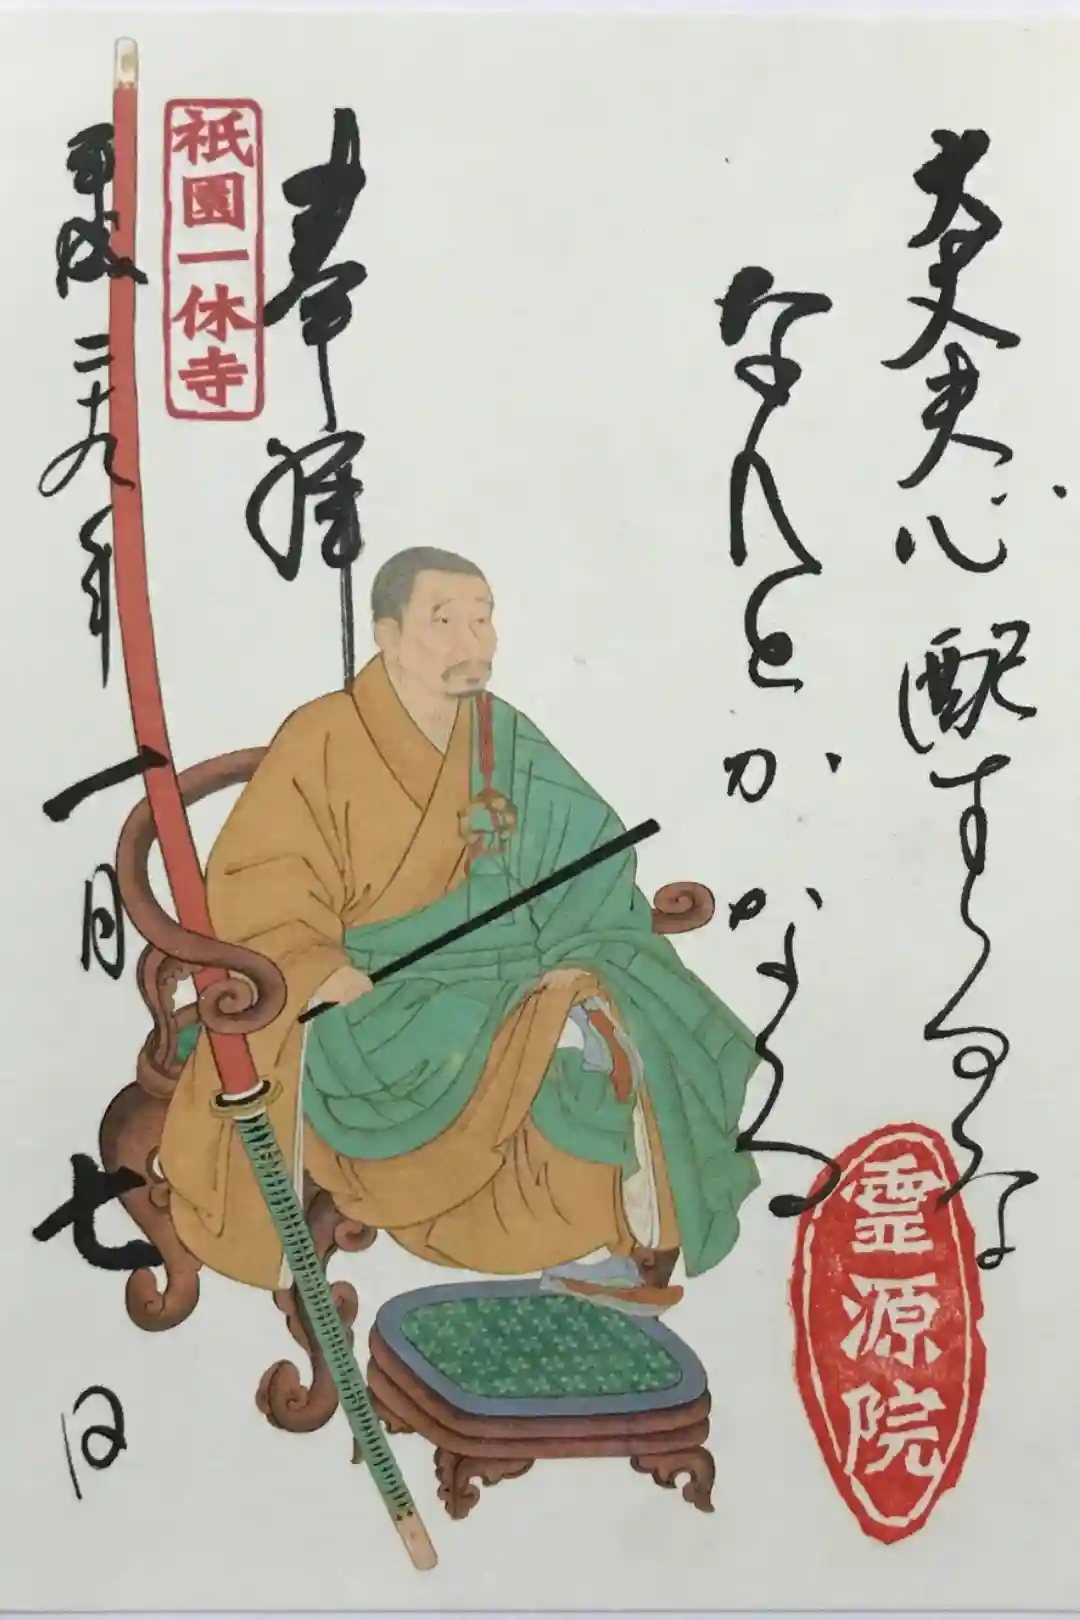 大丈夫心配するな
なんとかなる
奉拝
祇園一休寺
平成二十九年一月七日
霊源院